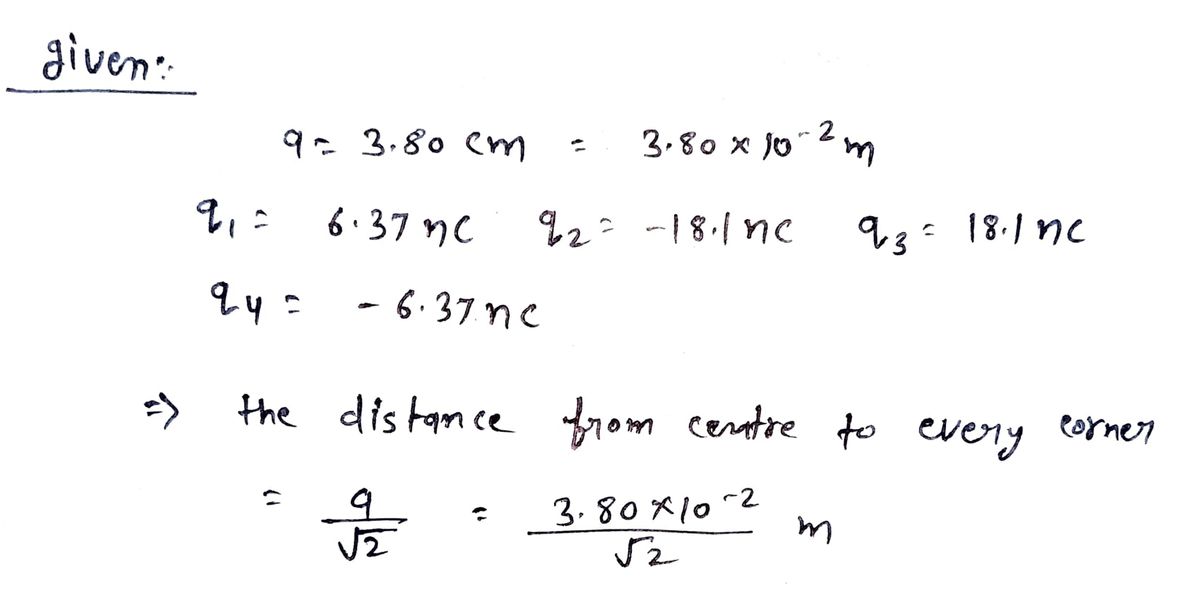 given:
a = 3.80 cm = 3.80 × 10⁻² m
q₁ = 6.37 nc q₂ = -18.1 nc q₃ = 18.1 nc
q₄ = - 6.37 nc
=> the distance from centre to every corner
= a/√2 = 3.80 × 10⁻²/√2 m